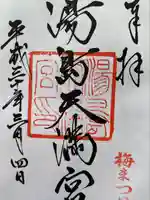 奉拝
湯島天満宮
平成三十年三月四日
梅まつり